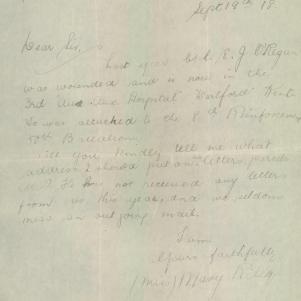 Sept 19th 18.
Dear Sir,
Last year E. J. O'Regan
was wounded and is now in the
3rd Aux Hospital Dartford Kent
He was attached to the 8th Reinforcements
50th Battalion.
Will you kindly tell me what
address I should put on letters, parcels
He has not received any letters
from us this year, and we seldom
miss an outgoing mail.
I am
Yours faithfully
(Miss) Mary